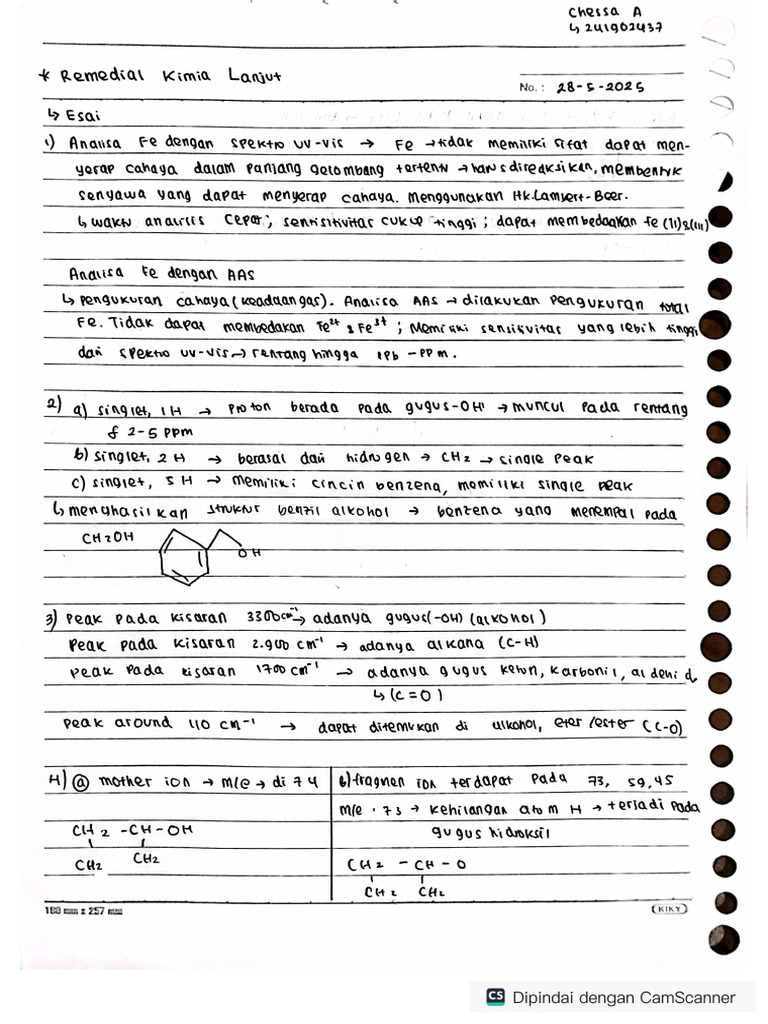 Chessa A
↳ 241902437
* Remedial Kimia Lanjut
No. : 28-5-2025
↳ Esai
1) Analisa Fe dengan spektro uv-vis → Fe → tidak memiliki sifat dapat men-
yerap cahaya dalam panjang gelombang tertentu → harus direaksikan, membentuk
senyawa yang dapat menyerap cahaya. menggunakan Hk. Lambert-Beer.
↳ waktu analisis cepat; sensitivitas cukup tinggi; dapat membedakan Fe (II) & (III)
Analisa Fe dengan AAS
↳ Pengukuran cahaya (keadaan gas). Analisa AAS → dilakukan pengukuran total
Fe. Tidak dapat membedakan Fe²⁺ & Fe³⁺; Memiliki sensitivitas yang lebih tinggi
dari spektro uv-vis → rentang hingga ppb - ppm.
2) a) singlet, 1H → proton berada pada gugus -OH → muncul pada rentang
δ 2-5 ppm
b) singlet, 2H → berasal dari hidrogen → CH2 → single peak
c) singlet, 5H → memiliki cincin benzena, memiliki single peak
↳ menghasilkan struktur benzil alkohol → benzena yang menempel pada
CH2OH
OH
3) peak pada kisaran 3300 cm⁻¹ → adanya gugus (-OH) (alkohol)
Peak pada kisaran 2.900 cm⁻¹ → adanya alkana (C-H)
Peak pada kisaran 1700 cm⁻¹ → adanya gugus keton, karbonil, aldehid
↳ (C=O)
Peak around 110 cm⁻¹ → dapat ditemukan di alkohol, eter/ester (C-O)
4) ⓐ mother ion → m/e → di 74
CH2 - CH - OH
CH2 CH2
b) fragmen ion terdapat pada 73, 59, 45
m/e · 73 → kehilangan atom H → terjadi pada
gugus hidroksil
CH2 - CH - O
CH2 CH2
180 mm x 257 mm
KIKY
CS Dipindai dengan CamScanner